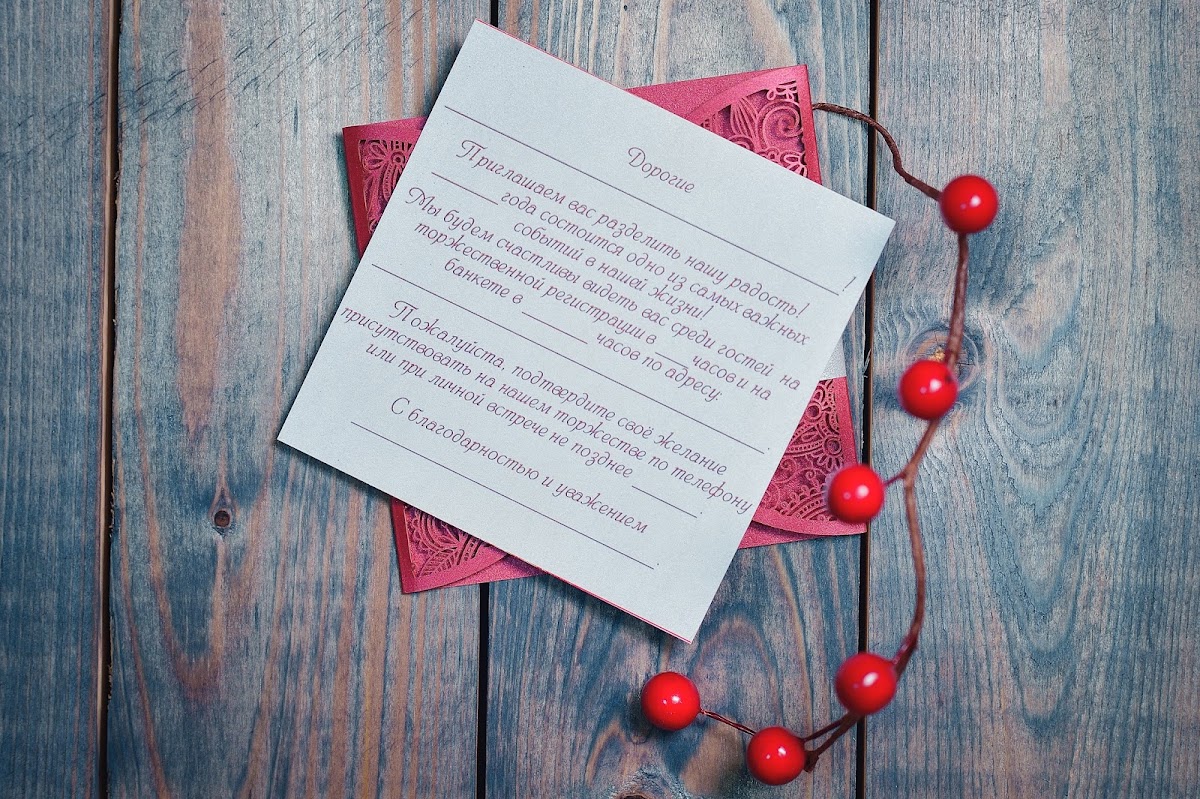 Дорогие
____________________!
Приглашаем вас разделить нашу радость!
______ года состоится одно из самых важных
событий в нашей жизни!
Мы будем счастливы видеть вас среди гостей на
торжественной регистрации в ___ часов и на
банкете в ______ часов по адресу:
____________________.
Пожалуйста, подтвердите своё желание
присутствовать на нашем торжестве по телефону
или при личной встрече не позднее ______.
С благодарностью и уважением
____________________.